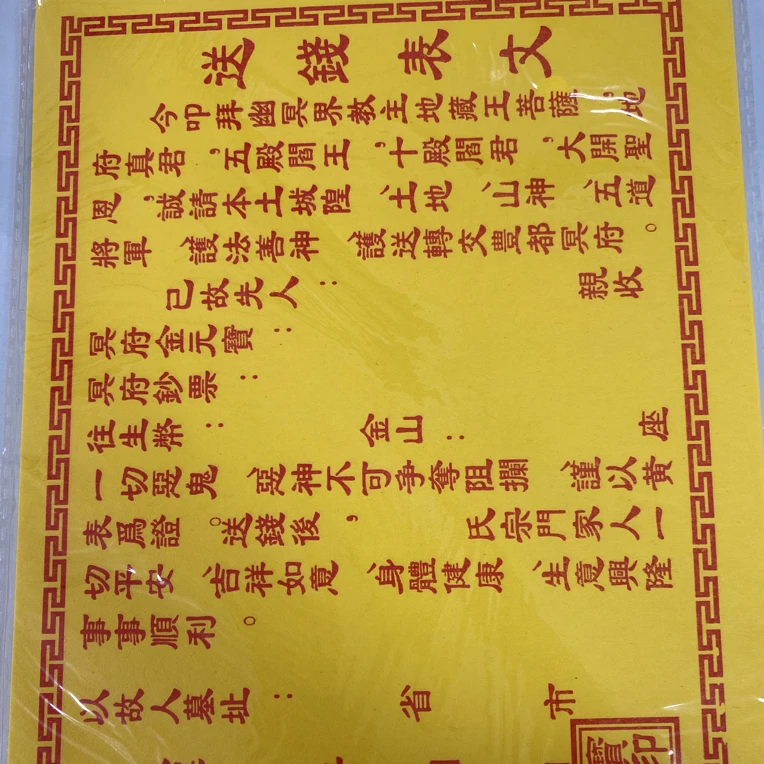 送錢表文
今叩拜幽冥界教主地藏王菩薩，地
府真君，五殿閻王，十殿閻君，大開聖
恩，誠請本土城隍、土地、山神、五道
將軍、護法善神、護送轉交豊都冥府。
已故先人： 親收
冥府金元寶：
冥府鈔票：
往生幣： 金山： 座
一切惡鬼、惡神不可争奪阻攔、謹以黄
表爲證。送錢後， 氏宗門家人一
切平安、吉祥如意、身體健康、生意興隆
事事順利。
以故人墓址： 省 市
寶印